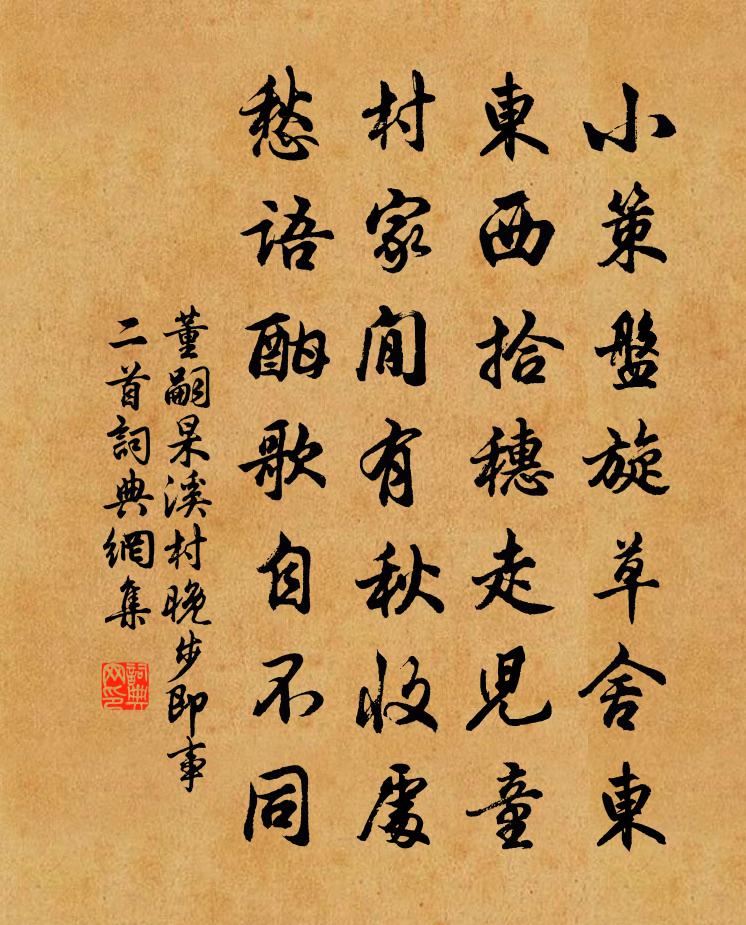 小策盤旋草舍東
東西拾穗走兒童
村家閒有秋收處
愁語酣歌自不同
董嗣杲溪村晚步即事
二首詞典網集
詞典网印